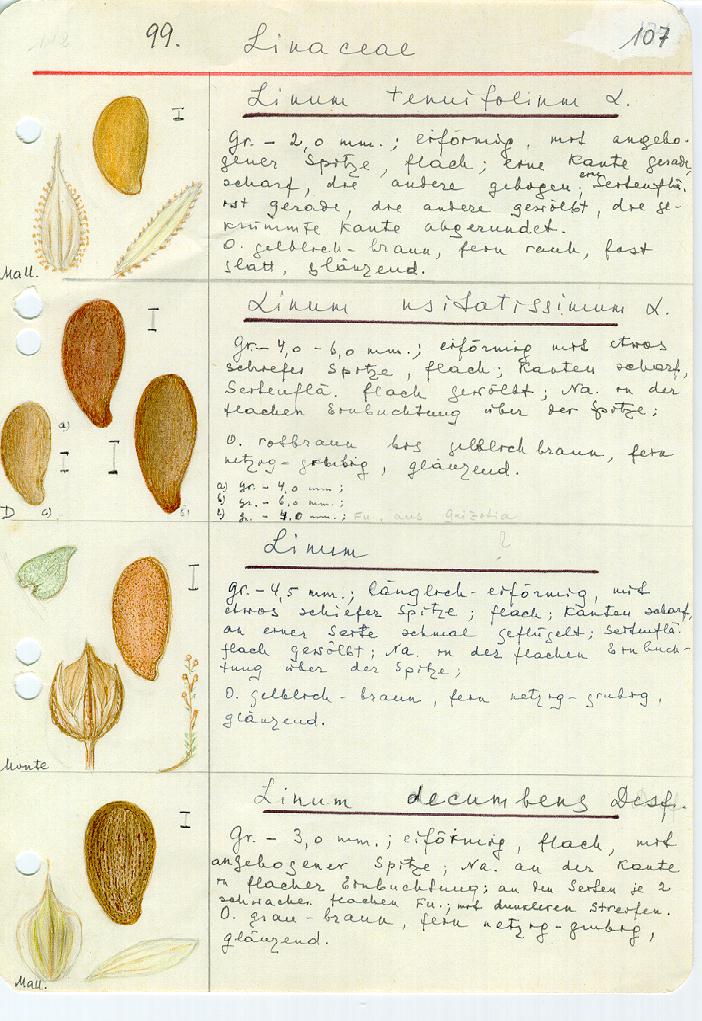 99. Linaceae 107
Linum tenuifolium L.
Gr. - 2,0 mm.; eiförmig, mit angebo-
gener Spitze, flach; eine Kante gerade,
scharf, die andere gebogen; eine Seitenflä.
ist gerade, die andere gewölbt, die ge-
krümmte Kante abgerundet.
O. gelblich-braun, fein rauh, fast
glatt, glänzend.
Mall.
Linum usitatissimum L.
Gr. - 4,0 - 6,0 mm.; eiförmig mit etwas
schiefer Spitze, flach; Kanten scharf,
Seitenflä. flach gewölbt; Na. in der
flachen Einbuchtung über der Spitze;
O. rotbraun bis gelblich braun, fein
netzig-grubig, glänzend.
a) gr. - 4,0 mm;
b) gr. - 6,0 mm.;
gr. - 4.0 mm.; Fu. aus Guizotia
a)
D c) b)
Linum ?
Gr. - 4,5 mm.; länglich-eiförmig, mit
etwas schiefer Spitze; flach; Kanten scharf,
an einer Seite schmal geflügelt; Seitenflä.
flach gewölbt; Na. in der flachen Einbuch-
tung über der Spitze;
O. gelblich-braun, fein netzig-grubig,
glänzend.
Monte
Linum decumbens Desf.
Gr. - 3,0 mm.; eiförmig, flach, mit
angebogener Spitze; Na. an der Kante
in flacher Einbuchtung; an den Seiten je 2
schwache flachen Fu.; mit dunkleren Streifen.
O. grau-braun, fein netzig-grubig,
glänzend.
Mall.